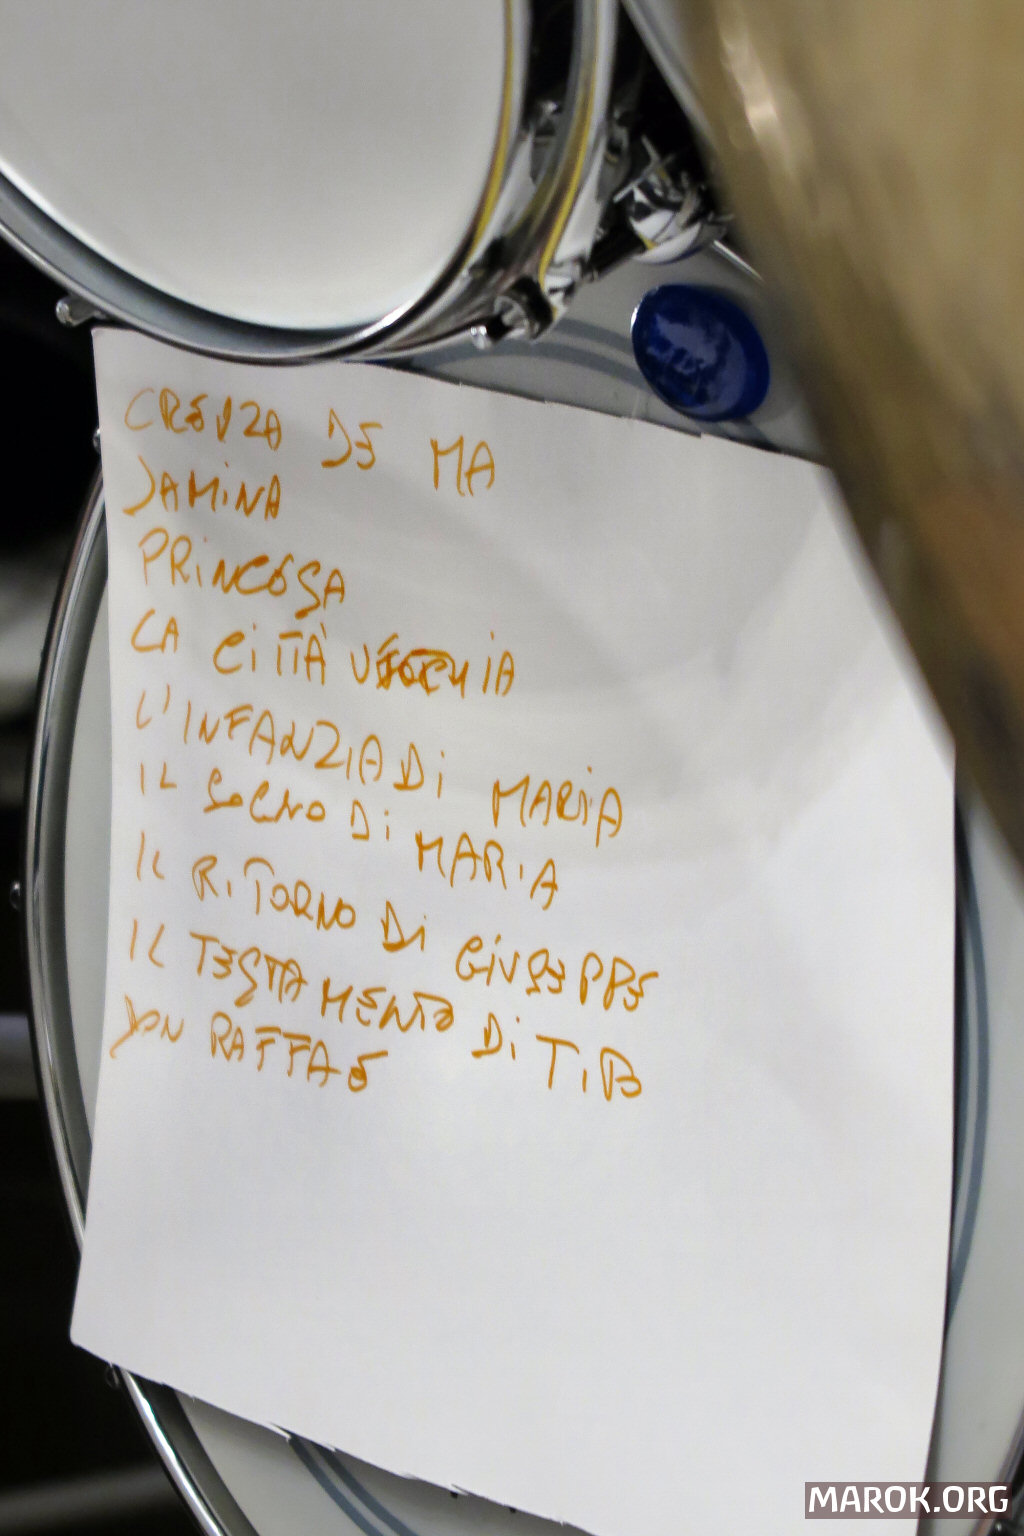 CREUZA DE MA
JAMINA
PRINCESA
LA CITTÀ VECCHIA
L'INFANZIA DI MARIA
IL SOGNO DI MARIA
IL RITORNO DI GIUSEPPE
IL TESTAMENTO DI TITO
DON RAFFAE
MAROK.ORG